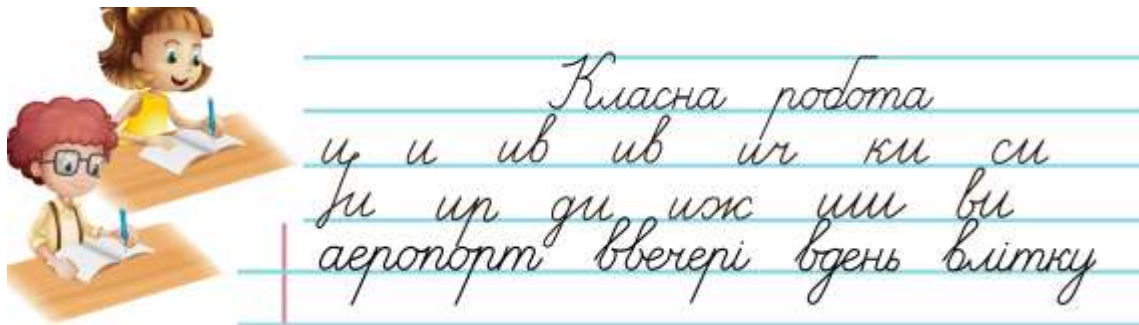 Класна робота
и и ив ив ич ки си
ри ир ди иж иш ви
аеропорт ввечері вдень влітку